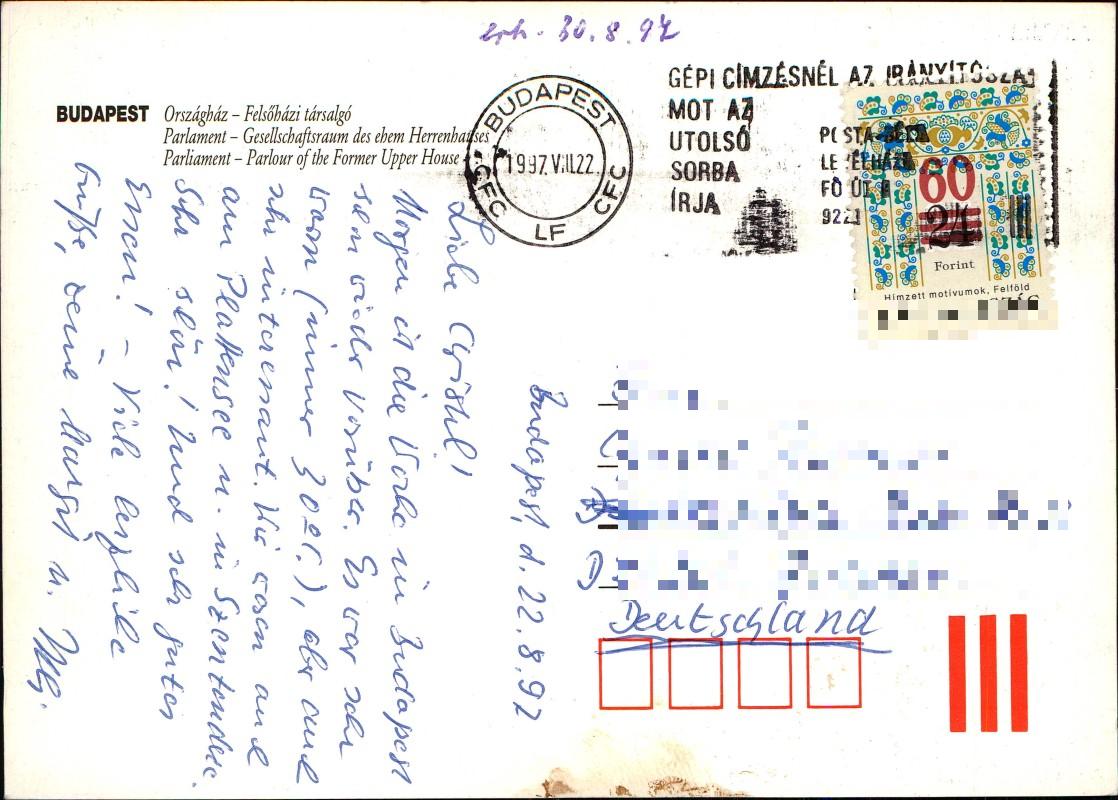 erh. 30.8.97
BUDAPEST Országház – Felsőházi társalgó
Parlament – Gesellschaftsraum des ehem Herrenhauses
Parliament – Parlour of the Former Upper House
BUDAPEST
1997.VIII.22.
CFC CFC
LF
GÉPI CÍMZÉSNÉL AZ IRÁNYÍTÓSZÁ
MOT AZ
UTOLSÓ
SORBA
ÍRJA
FŐ ÚT
60
24
Forint
Hímzett motívumok, Felföld
Budapest, d. 22.8.97
Liebe Christl!
Morgen ist die Woche in Budapest
schon wieder vorüber. Es war sehr
warm (immer 30 Gr.), aber auch
sehr interessant. Wir waren auch
am Plattensee u. in Szentendre.
Sehr schön! Und sehr gutes
Essen! – Viele herzliche
Grüße, deine Margit u.
D
Deutschland